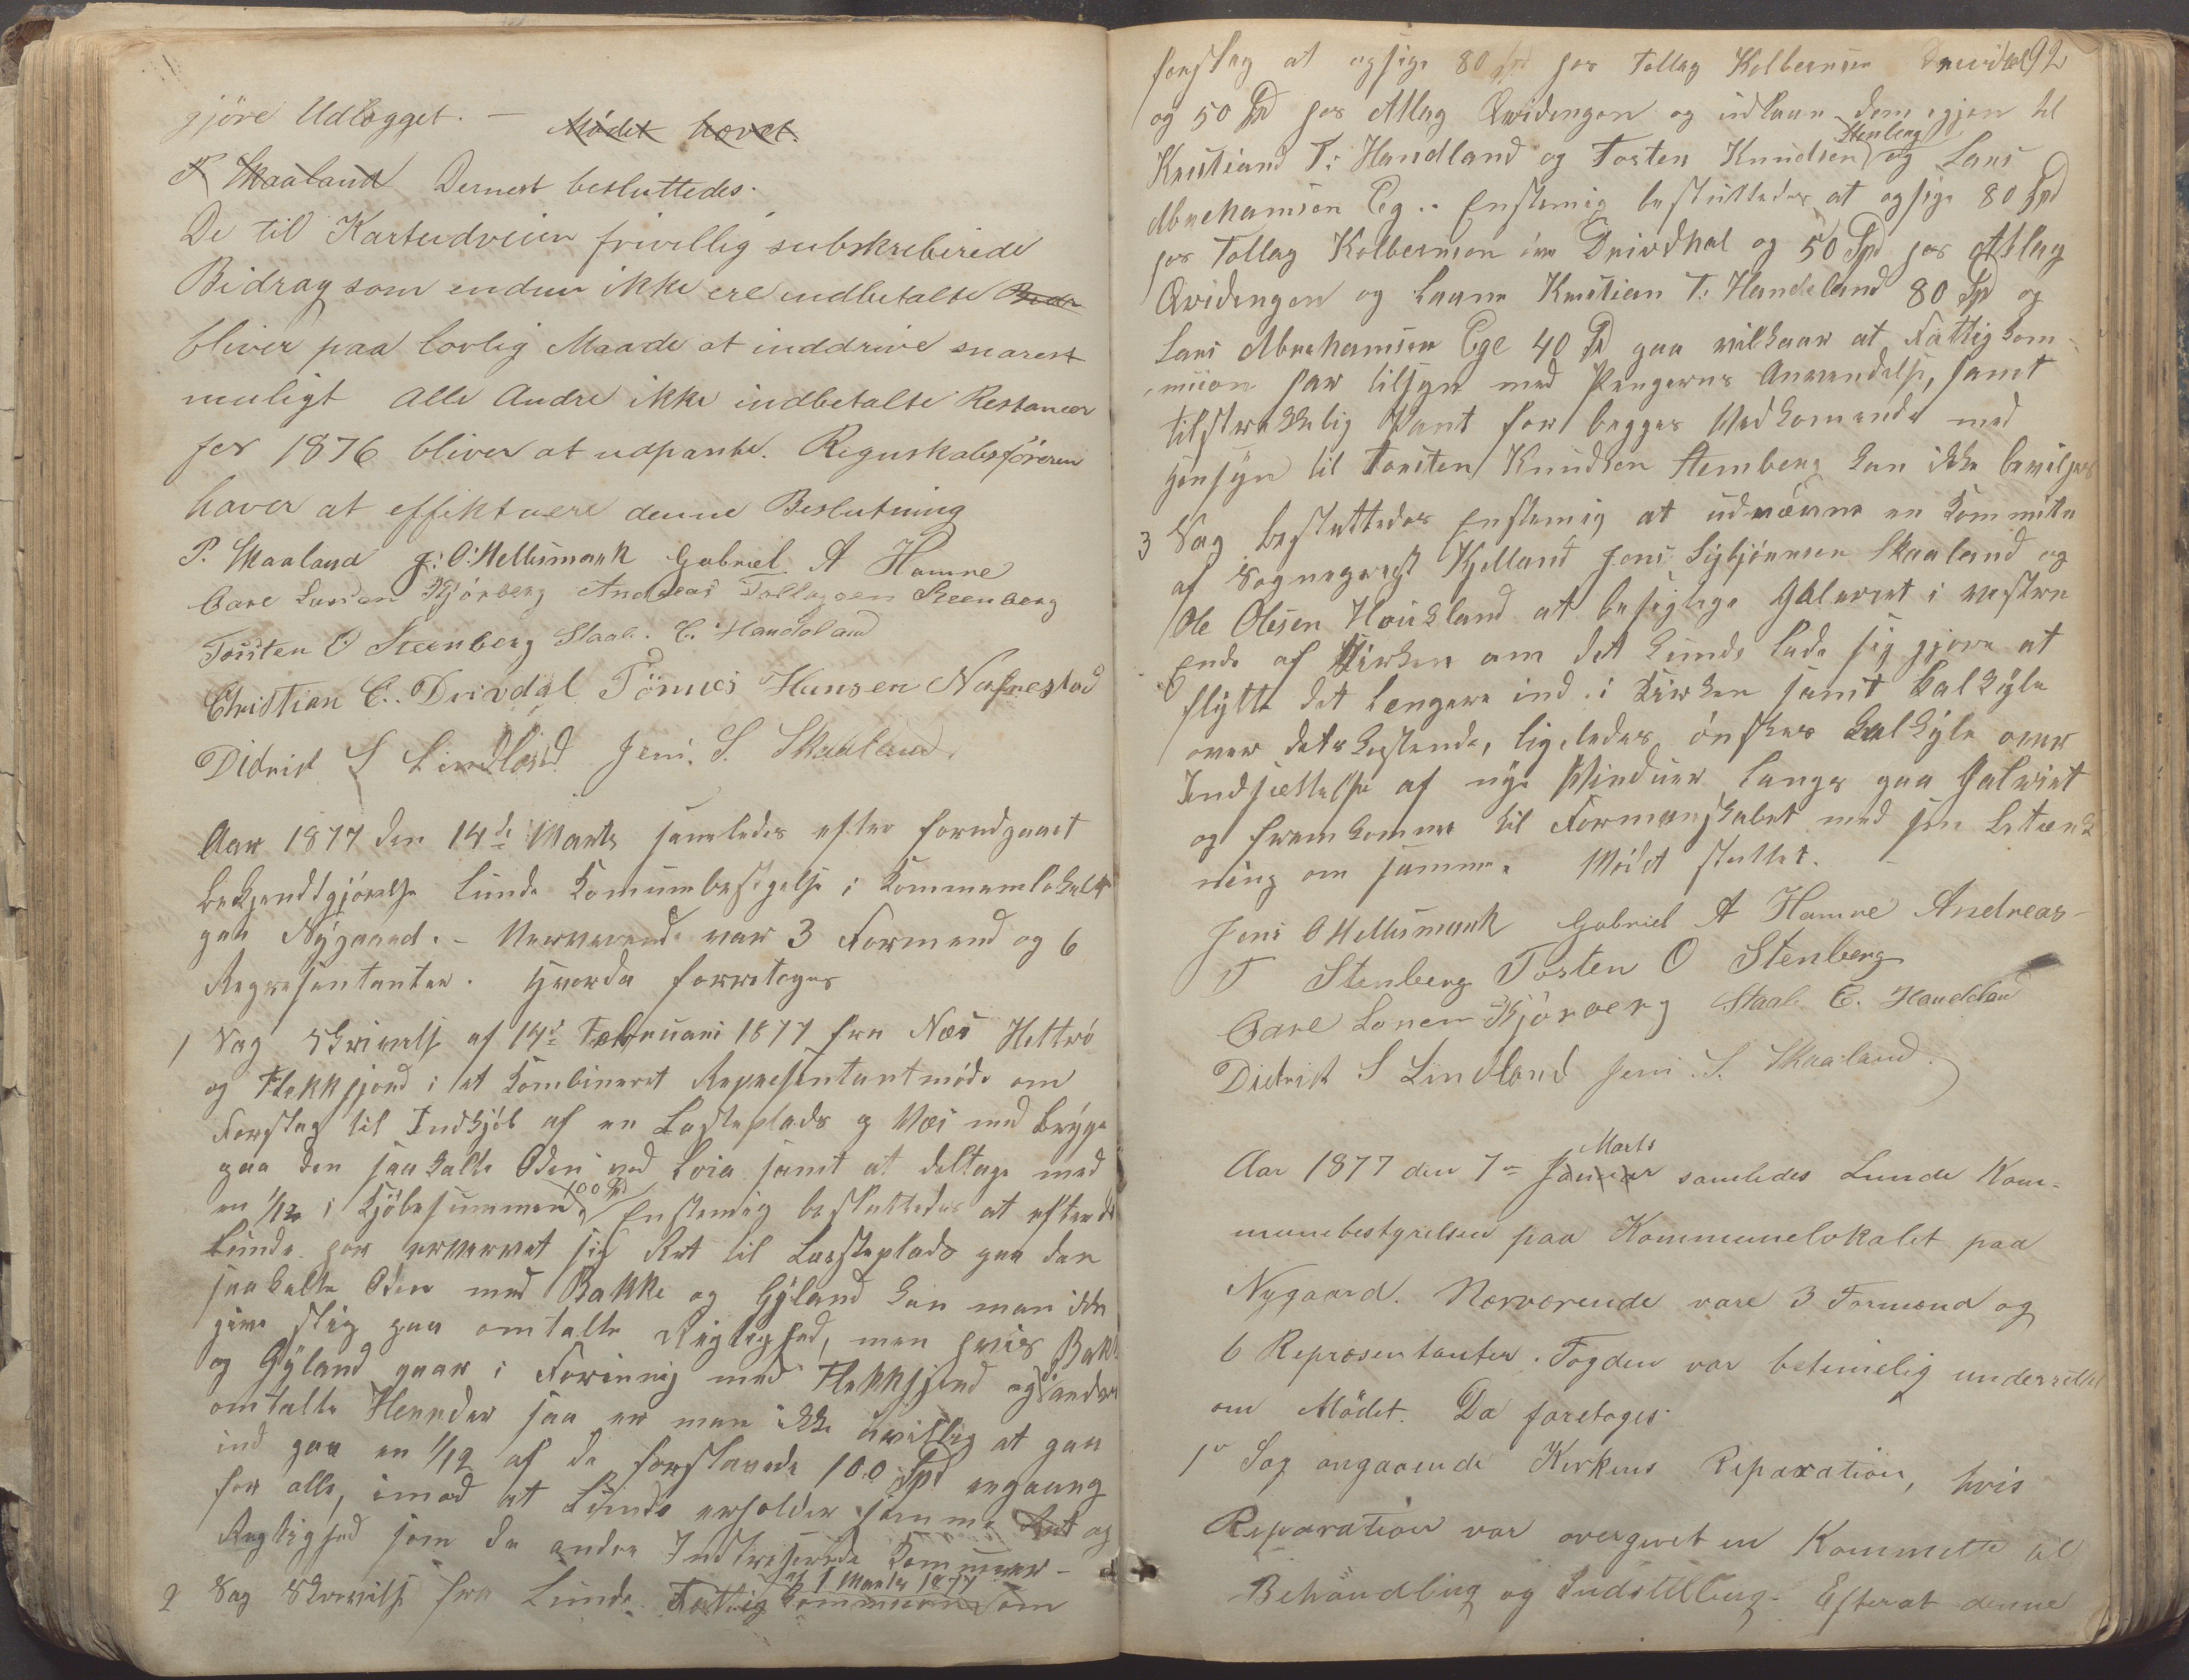 gjöre Udlægget. — Mödet hævet.
P Skaaland Dernest besluttedes.
De til Karteudveien frivillig subskreberede
Bidrag som endnu ikke ere indbetalte Bidr
bliver paa lovlig Maade at inddrive snarest
muligt Alle Andre ikke indbetalte Restancer
for 1876 bliver at udpante. Regnskabsföreren
haver at effektuere denne Beslutning
P. Skaaland J: O: Mellusmark Gabriel A Hamre
Care Larsen Kjörberg Andreas Tollagsen Steenberg
Torsten O Steenberg Staale. E. Handeland
Christian E.. Drivdal Tönnes Hansen Nafnestad
Didrik S Lindland Jens. S. Skaaland.
Aar 1877 den 14de Marts samledes efter forudgaaet
bekjendtgjörelse Lunde Komunebestyrelse i Kommunelokalet
paa Nygaard. – Nerverende var 3 Formend og 6
Representanter. Hvorda forretoges
1 Sag Skrivelse af 14de Februari 1877 fra Næs Hetterö
og Flekkefjord i et Kombineret Representantmöde om
Forslag til Indkjöb af en Lasteplads og Næs med Brygge
paa den saakalte Öen ved Loia samt at deltage med
en 1/12 i Kjöbesummen 100 Spd Enstemig besluttedes at efterdi
Lunde har erhvervet sig Ret til Lasteplads paa den
saakalte Öen med Bakke og Gyland kan man ikke
give slig paa omtalte Rigtighed, men hvis Bakke
og Gyland gaar i Forening med Flekkefjord og de andre
omtalte Herreder saa er man ikke uvillig at gaa
ind paa en 1/12 af de forslavede 100 Spd engaang
for alle, imod at Lunde erholder samme Ret og
Regtighed som de andre Intreserede Kommuner –
2 Sag Skrivelse fra Lunde Fattig Kommission af 1 Marts 1877 om
forslag at opsige 80 Spd hos Tollag Kolbernsen Drivdal 92
og 50 Spd hos Atlag Qvidingen og udlaane dem igjen til
Kristiand T: Handland og Tosten Knudsen Stenberg og Lars
Abrehamsen Eg.. Enstemig besluttedes at opsige 80 Spd
hos Tollag Kolbernsen Drivdhal og 50 Spd hos Atlag
Qvidingen og laane Kristian T: Handeland 80 Spd og
Lars Abrehamsen Ege 40 Spd paa vilkaar at Fattigkom-
mision har tilsyn med Pengernes Anvendelse, samt
tilstrekkelig Pant for begges Vedkomende med
hensyn til Torsten Knudsen Stemberg kan ikke beviljes
3 Sag besluttedes Enstemig at udnævne en Kommite
af Sogneprest Kjelland Jens Sigbjörnsen Skaaland og
Ole Olesen Houkland at besigtige Galeriet i vestre
Ende af Kirken om det kunde lade sig gjöre at
flytte det længere ind i Kirken samt Kalkyle
over dets kostende, ligeledes önskes Kalkyle over
Indsettelse af nye Vinduer langs paa Galeriet
og fremkomme til Formanskabet med sin betænk
ning om samme. Mödet sluttet.
Jens O Mellusmark Gabriel A Hamre Andreas
T Stenberg Tosten O Stenberg
Care Larsen Kjörberg Staale E. Handeland
Didrik S Lindland Jens. S. Skaaland.
Aar 1877 den 7de Januar Marts samledes Lunde Kom-
munebestyrelsen paa Kommunelokalet paa
Nygaard. Nærværende vare 3 Formænd og
6 Repræsentanter. Fogden var betimelig underrettet
om Mödet. Da foretoges
1o Sag angaaende Kirkens Reparation, hvis
Reparation var overgivet en Kommitte til
Behandling og Indstilling. Efterat denne